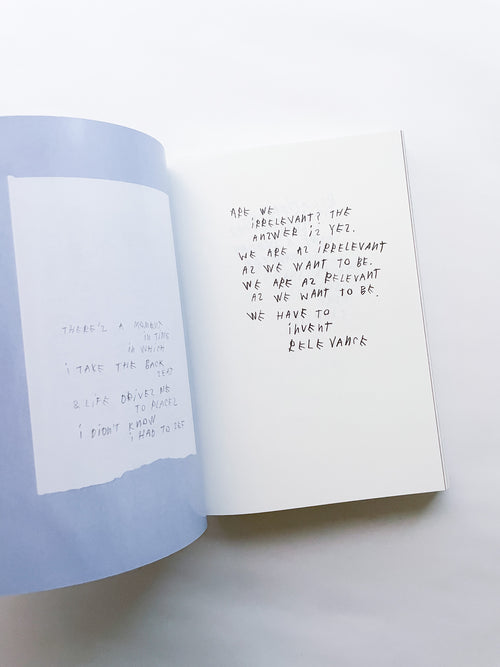 THERE'S A MOMENT
IN TIME
IN WHICH
I TAKE THE BACK
SEAT
& LIFE DRIVES ME
TO PLACES
I DIDN'T KNOW
I HAD TO SEE
ARE WE
IRRELEVANT? THE
ANSWER IS YES.
WE ARE AS IRRELEVANT
AS WE WANT TO BE.
WE ARE AS RELEVANT
AS WE WANT TO BE.
WE HAVE TO
INVENT
RELEVANCE